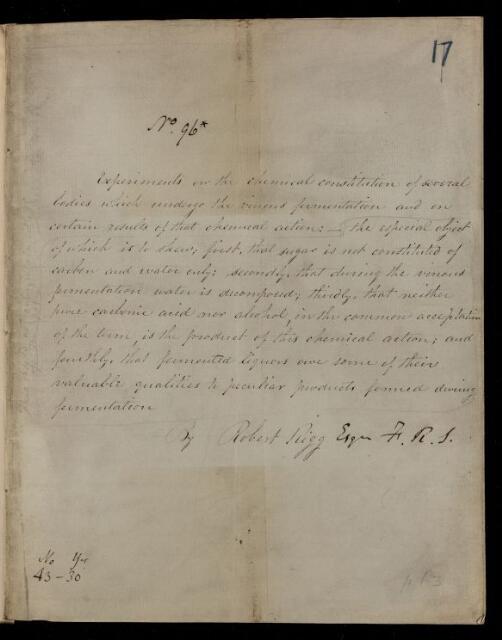 17
No. 96*
Experiments on the chemical constitution of several
bodies which undergo the vinous fermentation and on
certain results of that chemical action: — the especial object
of which is to shew, first, that sugar is not constituted of
carbon and water only: secondly, that during the vinous
fermentation water is decomposed; thirdly, that neither
pure carbonic acid nor alcohol, in the common acceptation
of the term, is the product of this chemical action; and
fourthly, that fermented liquors owe some of their
valuable qualities to peculiar products formed during
fermentation
By Robert Rigg Esqr F. R. S.
No
43-30